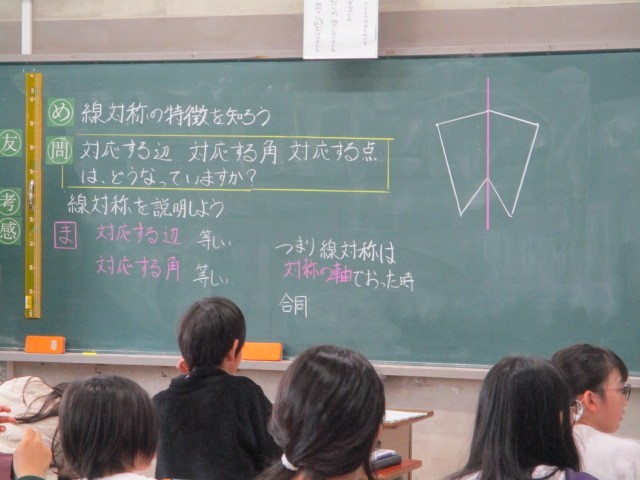 め 線対称の特徴を知ろう
友
問 対応する辺 対応する角 対応する点
は、どうなっていますか?
考
感
線対称を説明しよう
ま 対応する辺 等しい
対応する角 等しい
つまり線対称は
対称の軸でおった時
合同